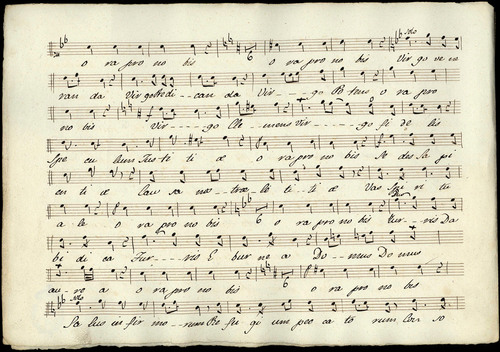 o ra pro no bis o ra pro no bis Vir go ve ne
ran da Vir go Prædi can da Vir - - - go Potens o ra pro
no bis Vir - - - go Cle - mens Vir - - - go fi de lis
Spe cu lum Jus ti ti æ o ra pro no bis Se des Sa pi
en ti æ Cau sa nos - træ læ ti - ti æ Vas Spi ri tu
a le o ra pro no bis 6 o ra pro no bis Tur - ris Da
bi di ca Tur - - - ris E bur ne a Do - - mus Domus
au - re a o ra pro no bis o ra pro no bis
Sa lus in fir mo - - rum Re fu gi um pec ca to rum Con so